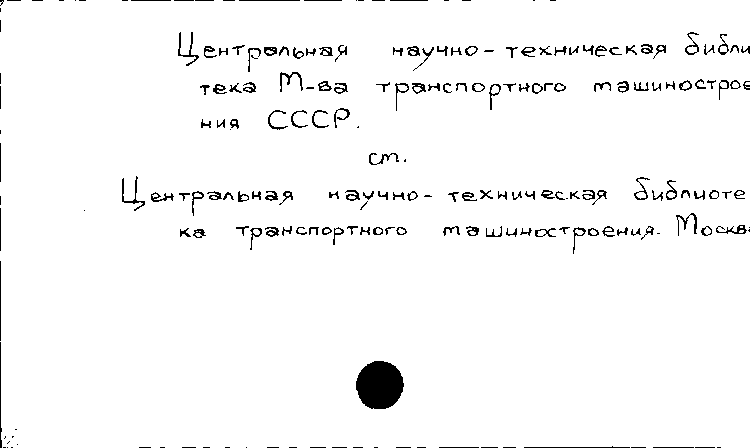 Центральная научно-техническая библи
тека М-ва транспортного машинострое
ния СССР.
см.
Центральная научно-техническая библиоте
ка транспортного машиностроения. Москва